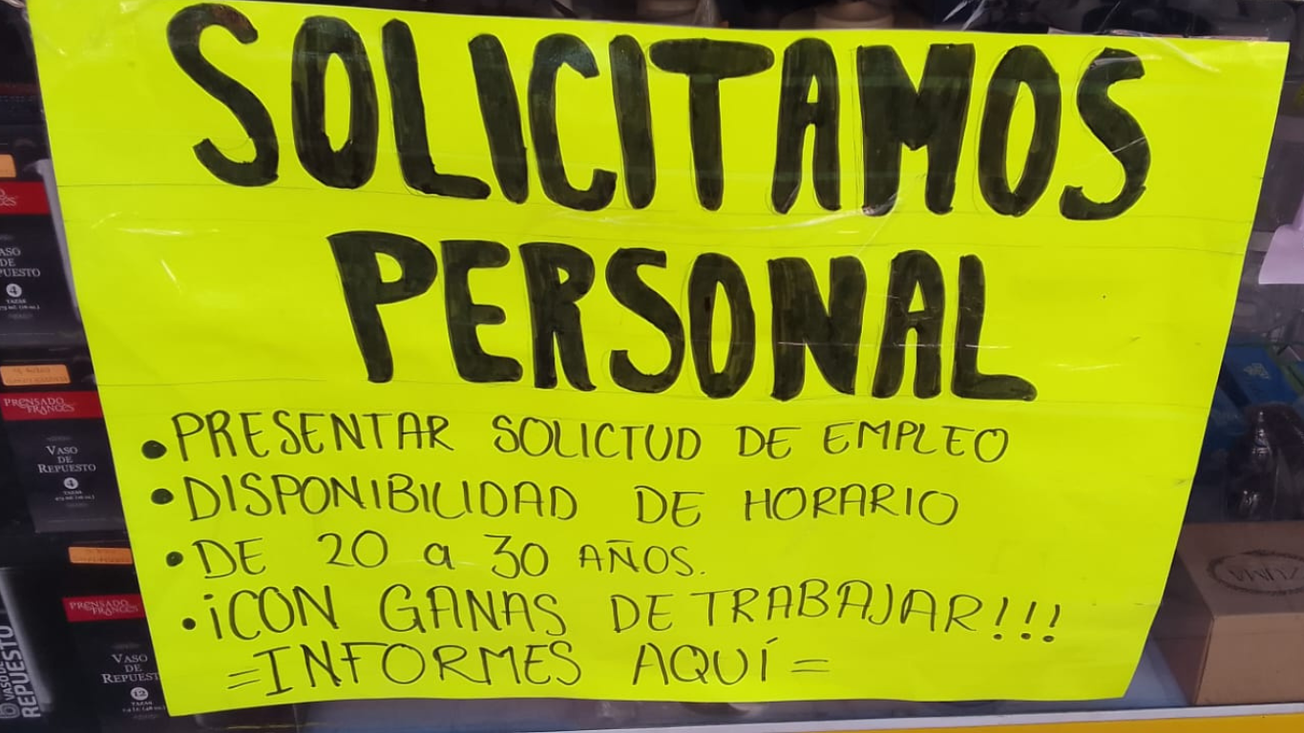 SOLICITAMOS
PERSONAL
• PRESENTAR SOLICTUD DE EMPLEO
• DISPONIBILIDAD DE HORARIO
• DE 20 a 30 AÑOS.
• ¡CON GANAS DE TRABAJAR!!!
=INFORMES AQUÍ=
VASO
DE
REPUESTO
4
PRENSADO
FRANCÉS
VASO
DE
REPUESTO
4
PRENSADO
FRANCÉS
VASO
DE
REPUESTO
12
VASO DE
REPUESTO